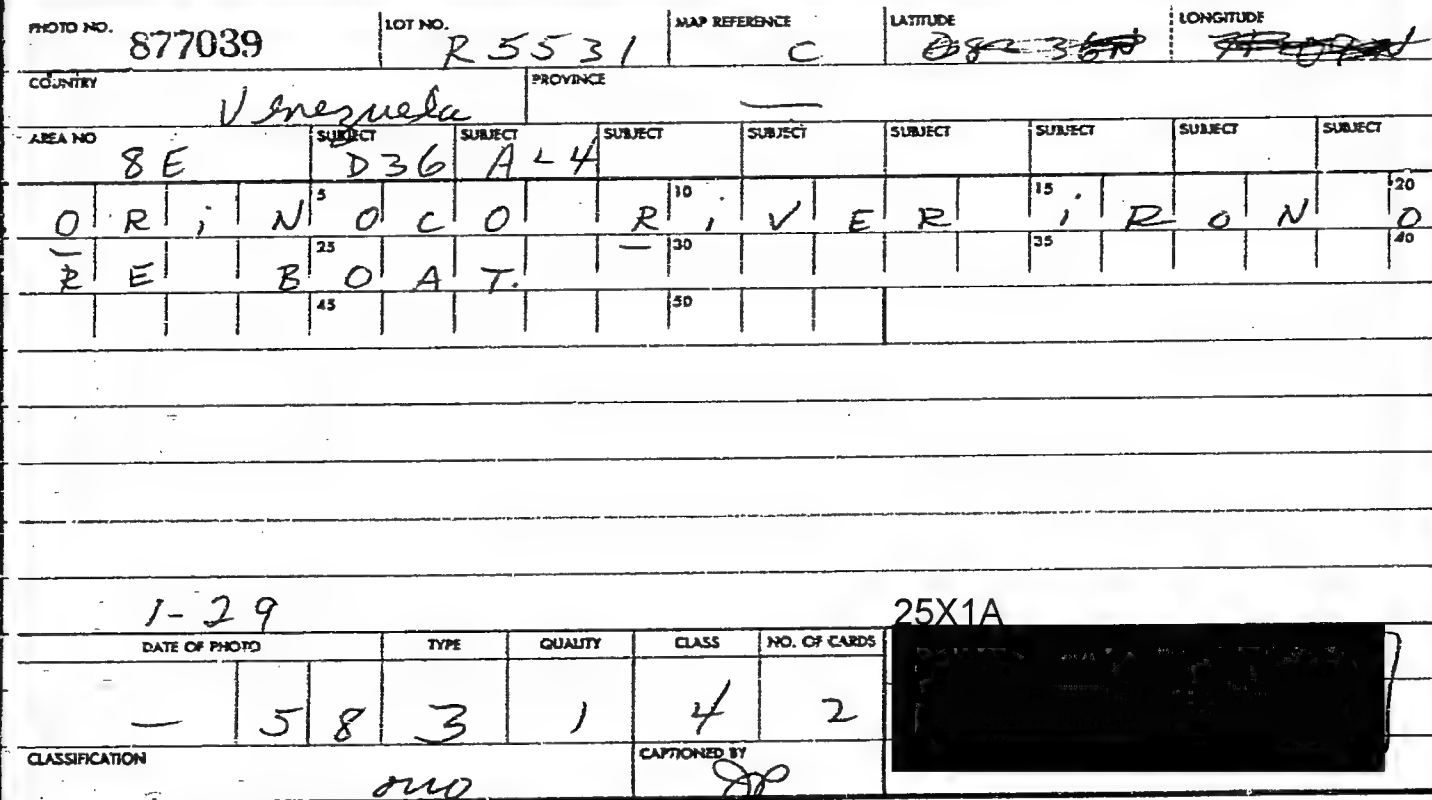 PHOTO NO. 877039 LOT NO. R5531 MAP REFERENCE C LATITUDE LONGITUDE
COUNTRY Venezuela PROVINCE —
AREA NO 8E SUBJECT D36 SUBJECT A-4 SUBJECT SUBJECT SUBJECT SUBJECT SUBJECT SUBJECT
5 10 15 20
ORiNOCO RiVER iRON O
25 30 35 40
RE BOAT.
45 50
1-29
25X1A
DATE OF PHOTO TYPE QUALITY CLASS NO. OF CARDS
— 58 3 1 4 2
CLASSIFICATION CAPTIONED BY